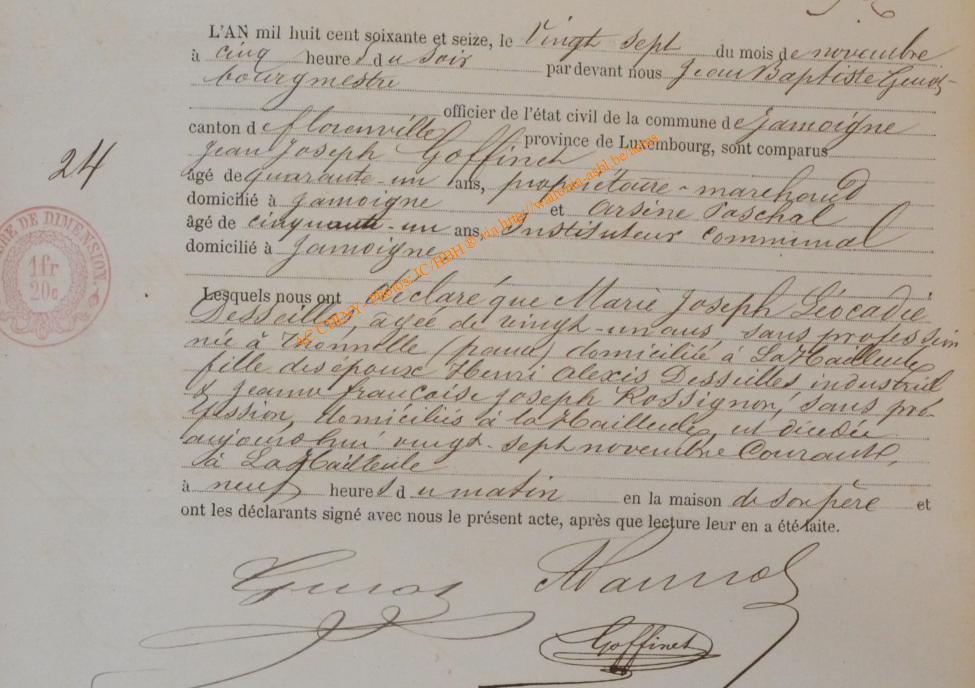 L'AN mil huit cent soixante et seize, le vingt sept du mois de novembre
à cinq heures du soir par devant nous Jean Baptiste
bourgmestre
officier de l'état civil de la commune de Jamoigne
canton de florenville province de Luxembourg, sont comparus
Jean Joseph Goffinet
âgé de quarante-un ans, propriétaire-marchand
domicilié à Jamoigne et Arsène Paschal
âgé de cinquante-un ans, Instituteur communal
domicilié à Jamoigne
24
RE DE DIMENSION.
1fr
20c
Photos JC/HBH ® via http://wanonia-asbl.be/actes
Lesquels nous ont déclaré que Marie Joseph Léocadie
Desseilles, âgée de vingt-un ans sans profession
née à Thonnelle domiciliée à La Hailleule
fille des époux Henri Alexis Desseilles industriel
& Jeanne françoise Joseph Rossignon, sans pro-
fession, domiciliés à la Hailleule, est décédée
aujourd'hui vingt-sept novembre Courant,
à La Hailleule
à neuf heures du matin en la maison de son père et
ont les déclarants signé avec nous le présent acte, après que lecture leur en a été faite.
Goffinet